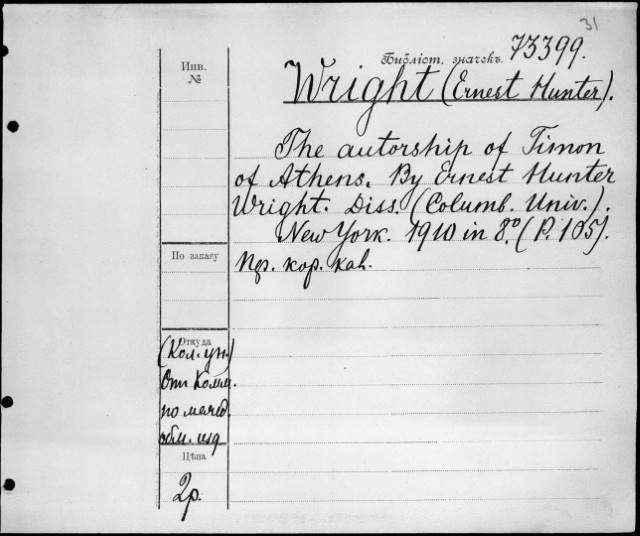 31
Библіот. значекъ 73399.
Инв.
№
Wright (Ernest Hunter).
The autorship of Timon
of Athens. By Ernest Hunter
Wright. Diss. (Columb. Univ.).
New York. 1910 in 8.° (P. 105).
По заказу
Пр. кор. каl.
Откуда
(Кол. ун.)
От Комм.
по межд.
обм. изд
Цѣна
2р.